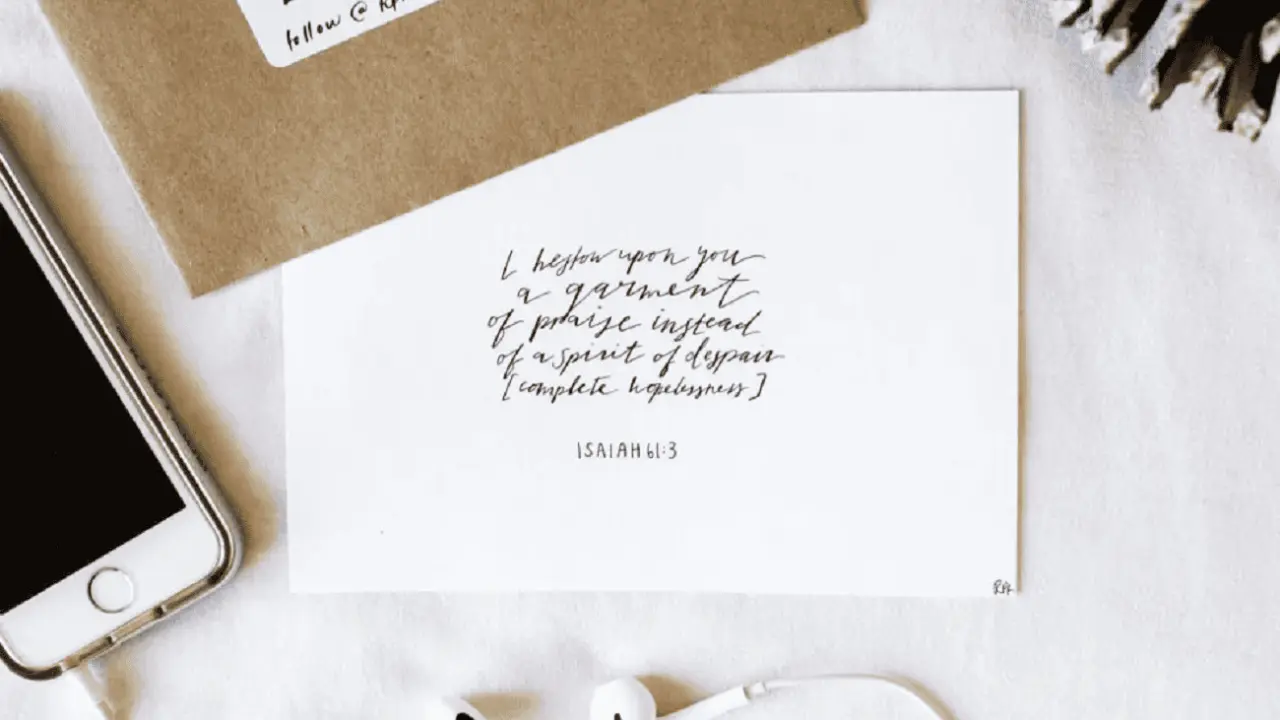 follow @
I bestow upon you
a garment
of praise instead
of a spirit of despair
[complete hopelessness]
ISAIAH 61:3